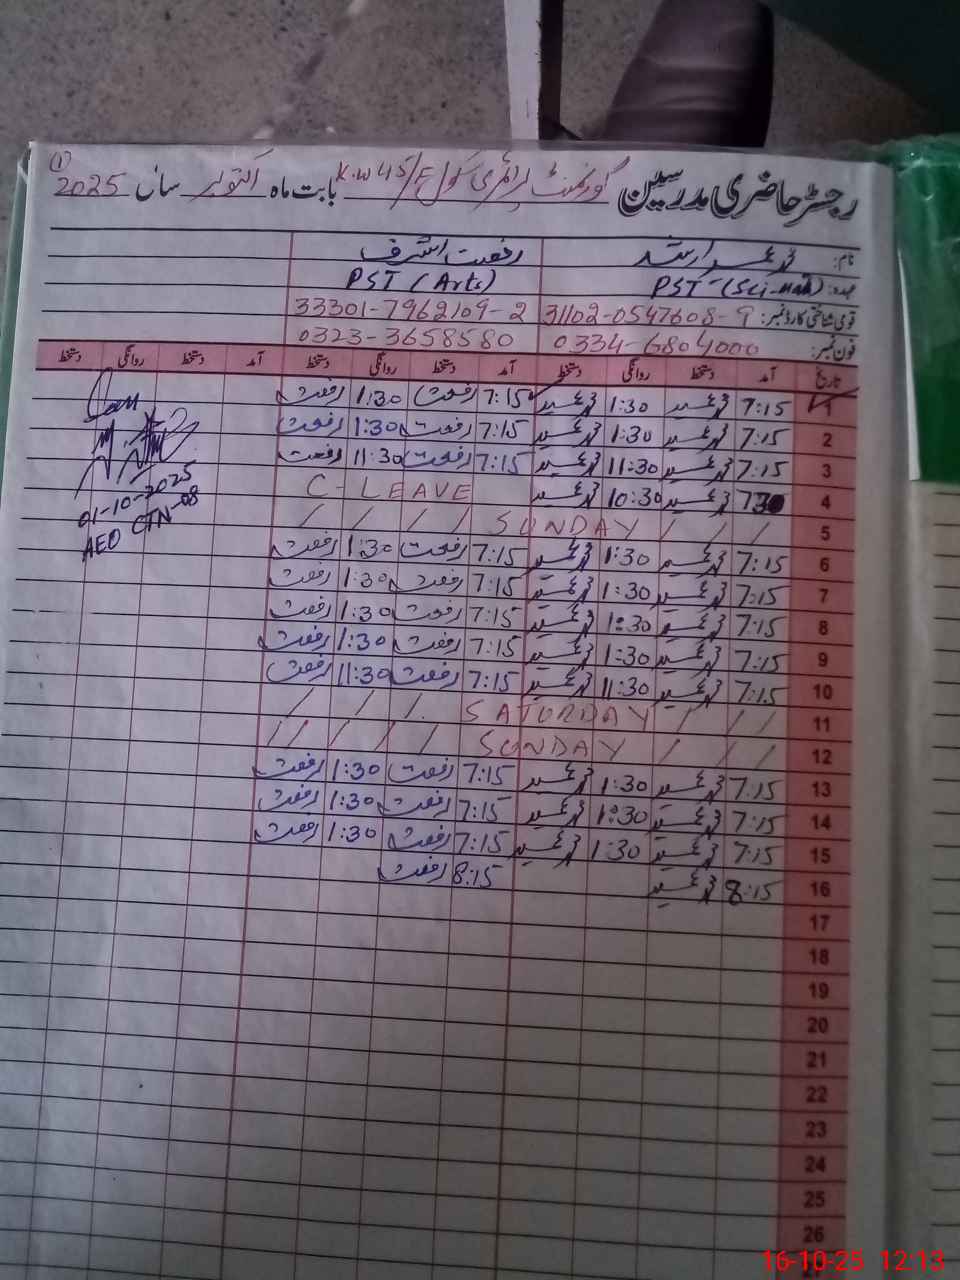 (1)
رجسٹر حاضری مدرسین گورنمنٹ پرائمری سکول K.W 45/F بابت ماہ اکتوبر سال 2025
نام: محمد عمیر ارشد رفعت اشرف
عہدہ: PST (Sci-Math) PST (Arts)
قومی شناختی کارڈ نمبر: 31102-0547608-9 33301-7962109-2
فون نمبر: 0334-6804000 0323-3658580
تاریخ آمد دستخط روانگی دستخط آمد دستخط روانگی دستخط آمد دستخط روانگی دستخط
1 7:15 محمد عمیر 1:30 محمد عمیر 7:15 رفعت 1:30 رفعت
2 7:15 محمد عمیر 1:30 محمد عمیر 7:15 رفعت 1:30 رفعت
3 7:15 محمد عمیر 11:30 محمد عمیر 7:15 رفعت 11:30 رفعت
4 730 محمد عمیر 10:30 محمد عمیر C-LEAVE
5 / / / SUNDAY / / / /
6 7:15 محمد عمیر 1:30 محمد عمیر 7:15 رفعت 1:30 رفعت
7 7:15 محمد عمیر 1:30 محمد عمیر 7:15 رفعت 1:30 رفعت
8 7:15 محمد عمیر 1:30 محمد عمیر 7:15 رفعت 1:30 رفعت
9 7:15 محمد عمیر 1:30 محمد عمیر 7:15 رفعت 1:30 رفعت
10 7:15 محمد عمیر 11:30 محمد عمیر 7:15 رفعت 11:30 رفعت
11 / / / SATURDAY / / /
12 / / / SUNDAY / / / / /
13 7:15 محمد عمیر 1:30 محمد عمیر 7:15 رفعت 1:30 رفعت
14 7:15 محمد عمیر 1:30 محمد عمیر 7:15 رفعت 1:30 رفعت
15 7:15 محمد عمیر 1:30 محمد عمیر 7:15 رفعت 1:30 رفعت
16 8:15 محمد عمیر 8:15 رفعت
17
18
19
20
21
22
23
24
25
26
01-10-2025
AEO CTN-08
16-10-25 12:13